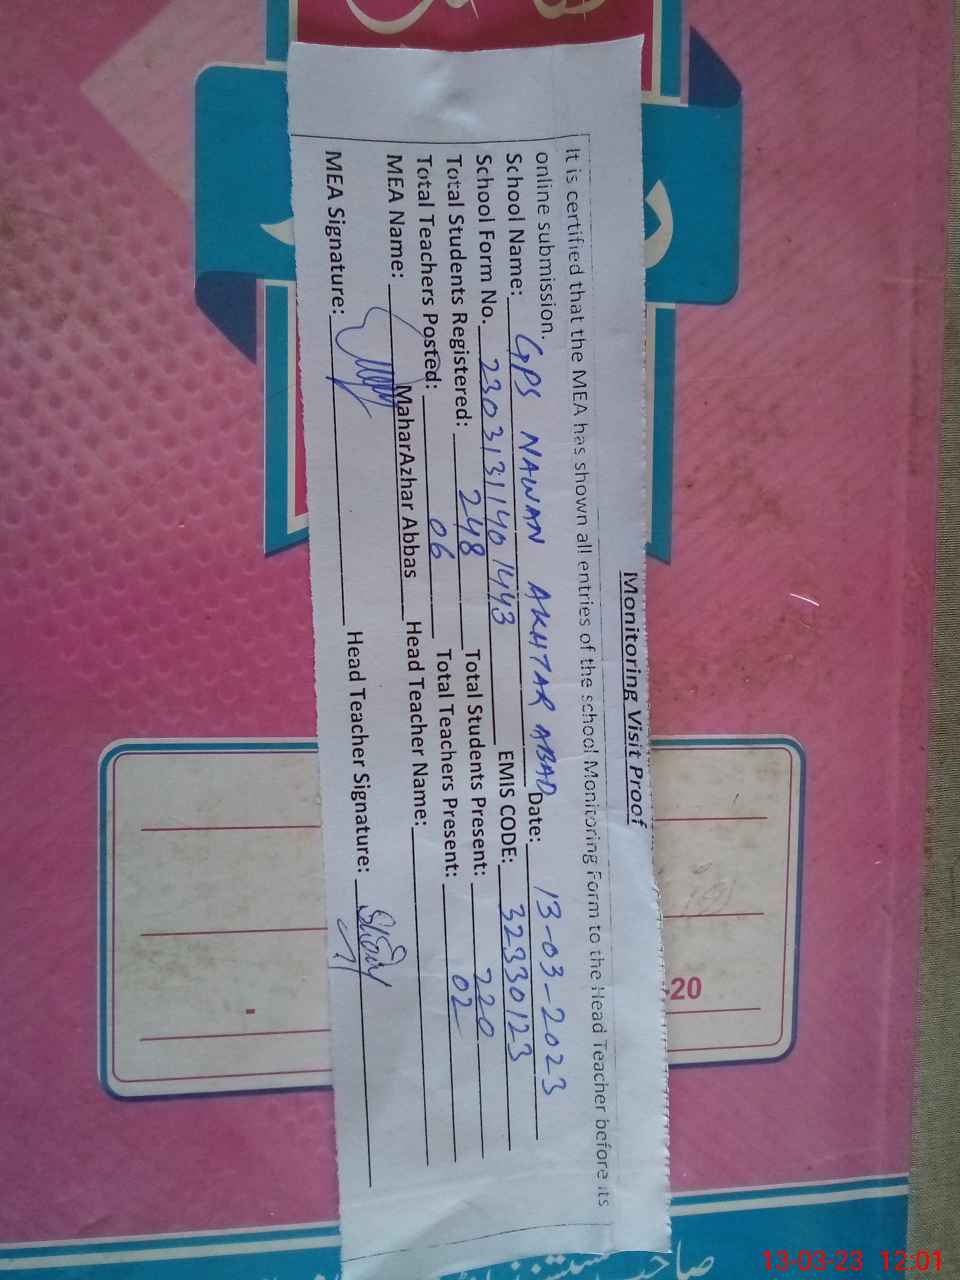 Monitoring Visit Proof
It is certified that the MEA has shown all entries of the school Monitoring Form to the Head Teacher before its
online submission.
School Name: GPS NAWAN AKHTAR ABAD Date: 13-03-2023
School Form No. 2303131140 1443 EMIS CODE: 32330123
Total Students Registered: 248 Total Students Present: 220
Total Teachers Posted: 06 Total Teachers Present: 02
MEA Name: MaharAzhar Abbas Head Teacher Name:
MEA Signature: Head Teacher Signature:
-20
صاحب
13-03-23 12:01